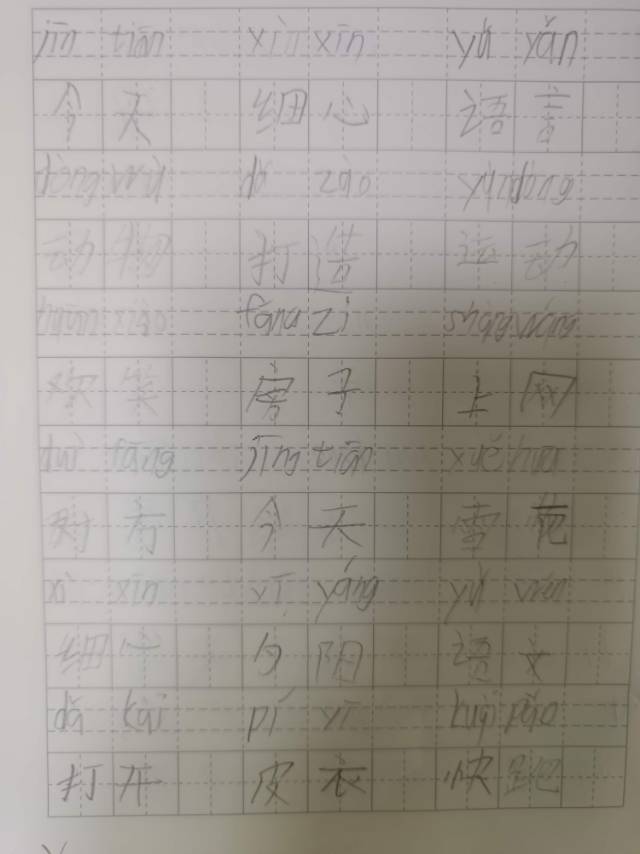 jīn tiān xì xīn yǔ yán
今天 细心 语言
dòng wù dǎ zào yùn dòng
动物 打造 运动
huān xiào fáng zi shàng wǎng
欢笑 房子 上网
duì fāng jīng tiān xuě huā
对方 今天 雪花
xì xīn xī yáng yǔ wén
细心 夕阳 语文
dǎ kāi pí yī kuài pǎo
打开 皮衣 快跑